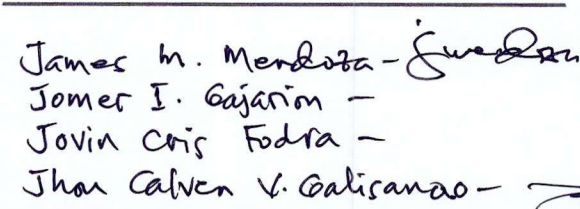 James M. Mendoza -
Jomer I. Gajarion -
Jovin Cris Fodra -
Jhon Calven V. Galisanao -